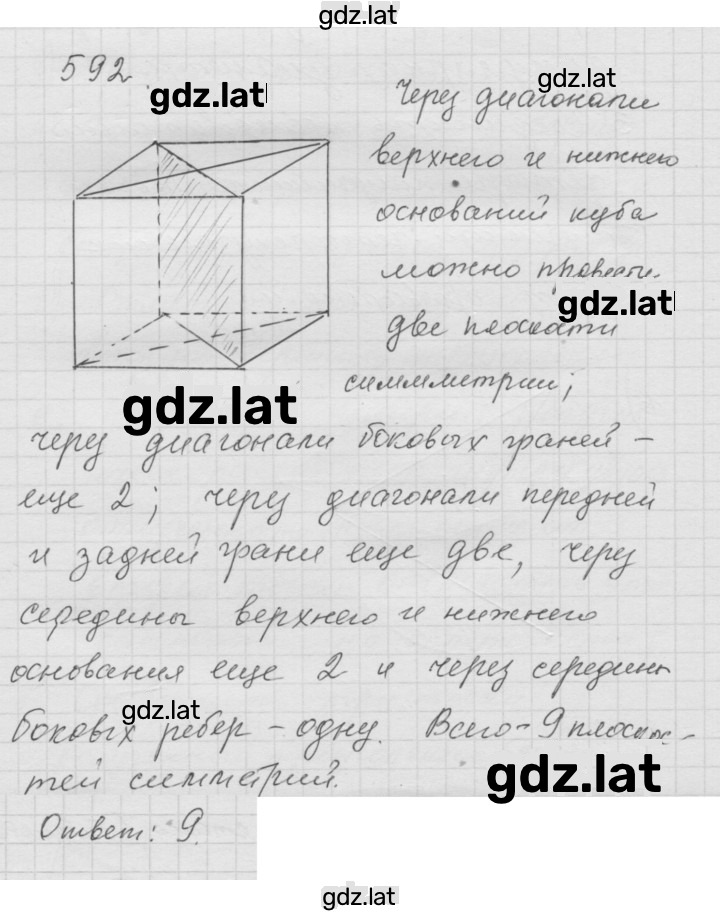 gdz.lat
592
gdz.lat
gdz.lat
Через диагонали
верхнего и нижнего
оснований куба
можно провести
gdz.lat
две плоскости
симметрии;
gdz.lat
через диагонали боковых граней –
еще 2; через диагонали передней
и задней грани еще две, через
середины верхнего и нижнего
основания еще 2 и через середины
gdz.lat
боковых ребер – одну. Всего – 9 плоскос-
тей симметрий.
gdz.lat
Ответ: 9.
gdz.lat